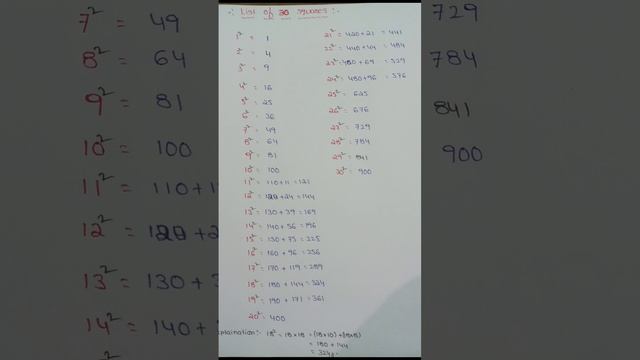 :- List of 30 squares :-
1² = 1
2² = 4
3² = 9
4² = 16
5² = 25
6² = 36
7² = 49
8² = 64
9² = 81
10² = 100
11² = 110+11 = 121
12² = 120+24 = 144
13² = 130+39 = 169
14² = 140+56 = 196
15² = 150+75 = 225
16² = 160+96 = 256
17² = 170+119 = 289
18² = 180+144 = 324
19² = 190+171 = 361
20² = 400
21² = 420+21 = 441
22² = 440+44 = 484
23² = 460+69 = 529
24² = 480+96 = 576
25² = 625
26² = 676
27² = 729
28² = 784
29² = 841
30² = 900
xplaination:- 18² = 18×18 = (18×10)+(18×8)
= 180+144
= 324
7² = 49
8² = 64
9² = 81
10² = 100
11² = 110+1
12² = 120+2
13² = 130+
14² = 140+
729
784
841
900